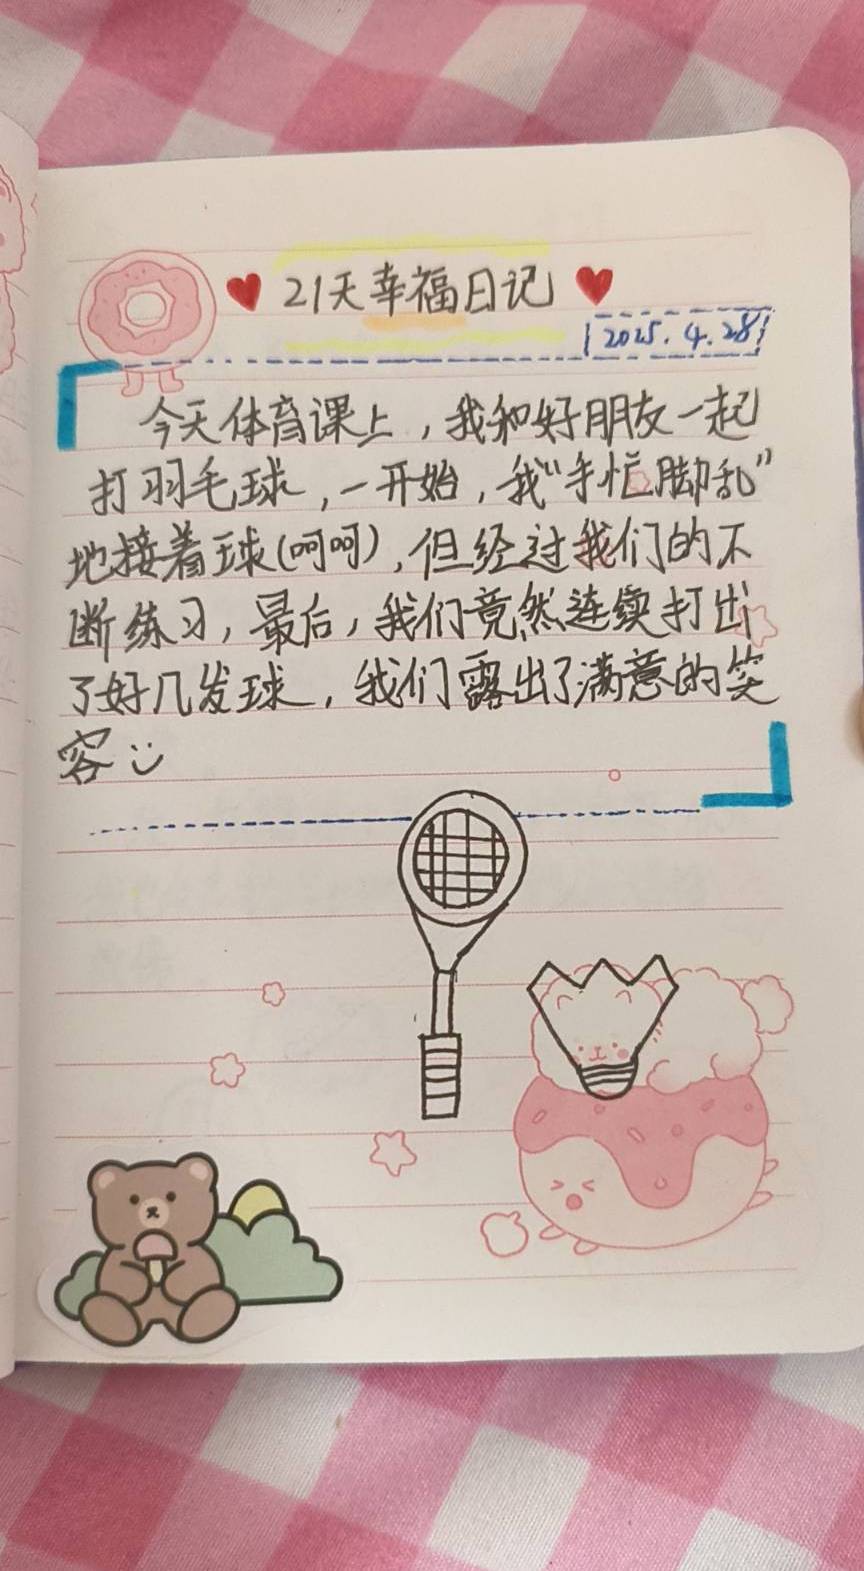 21天幸福日记
2025.4.28
今天体育课上，我和好朋友一起
打羽毛球，一开始，我“手忙脚乱”
地接着球(呵呵)，但经过我们的不
断练习，最后，我们竟然连续打出
了好几发球，我们露出了满意的笑
容